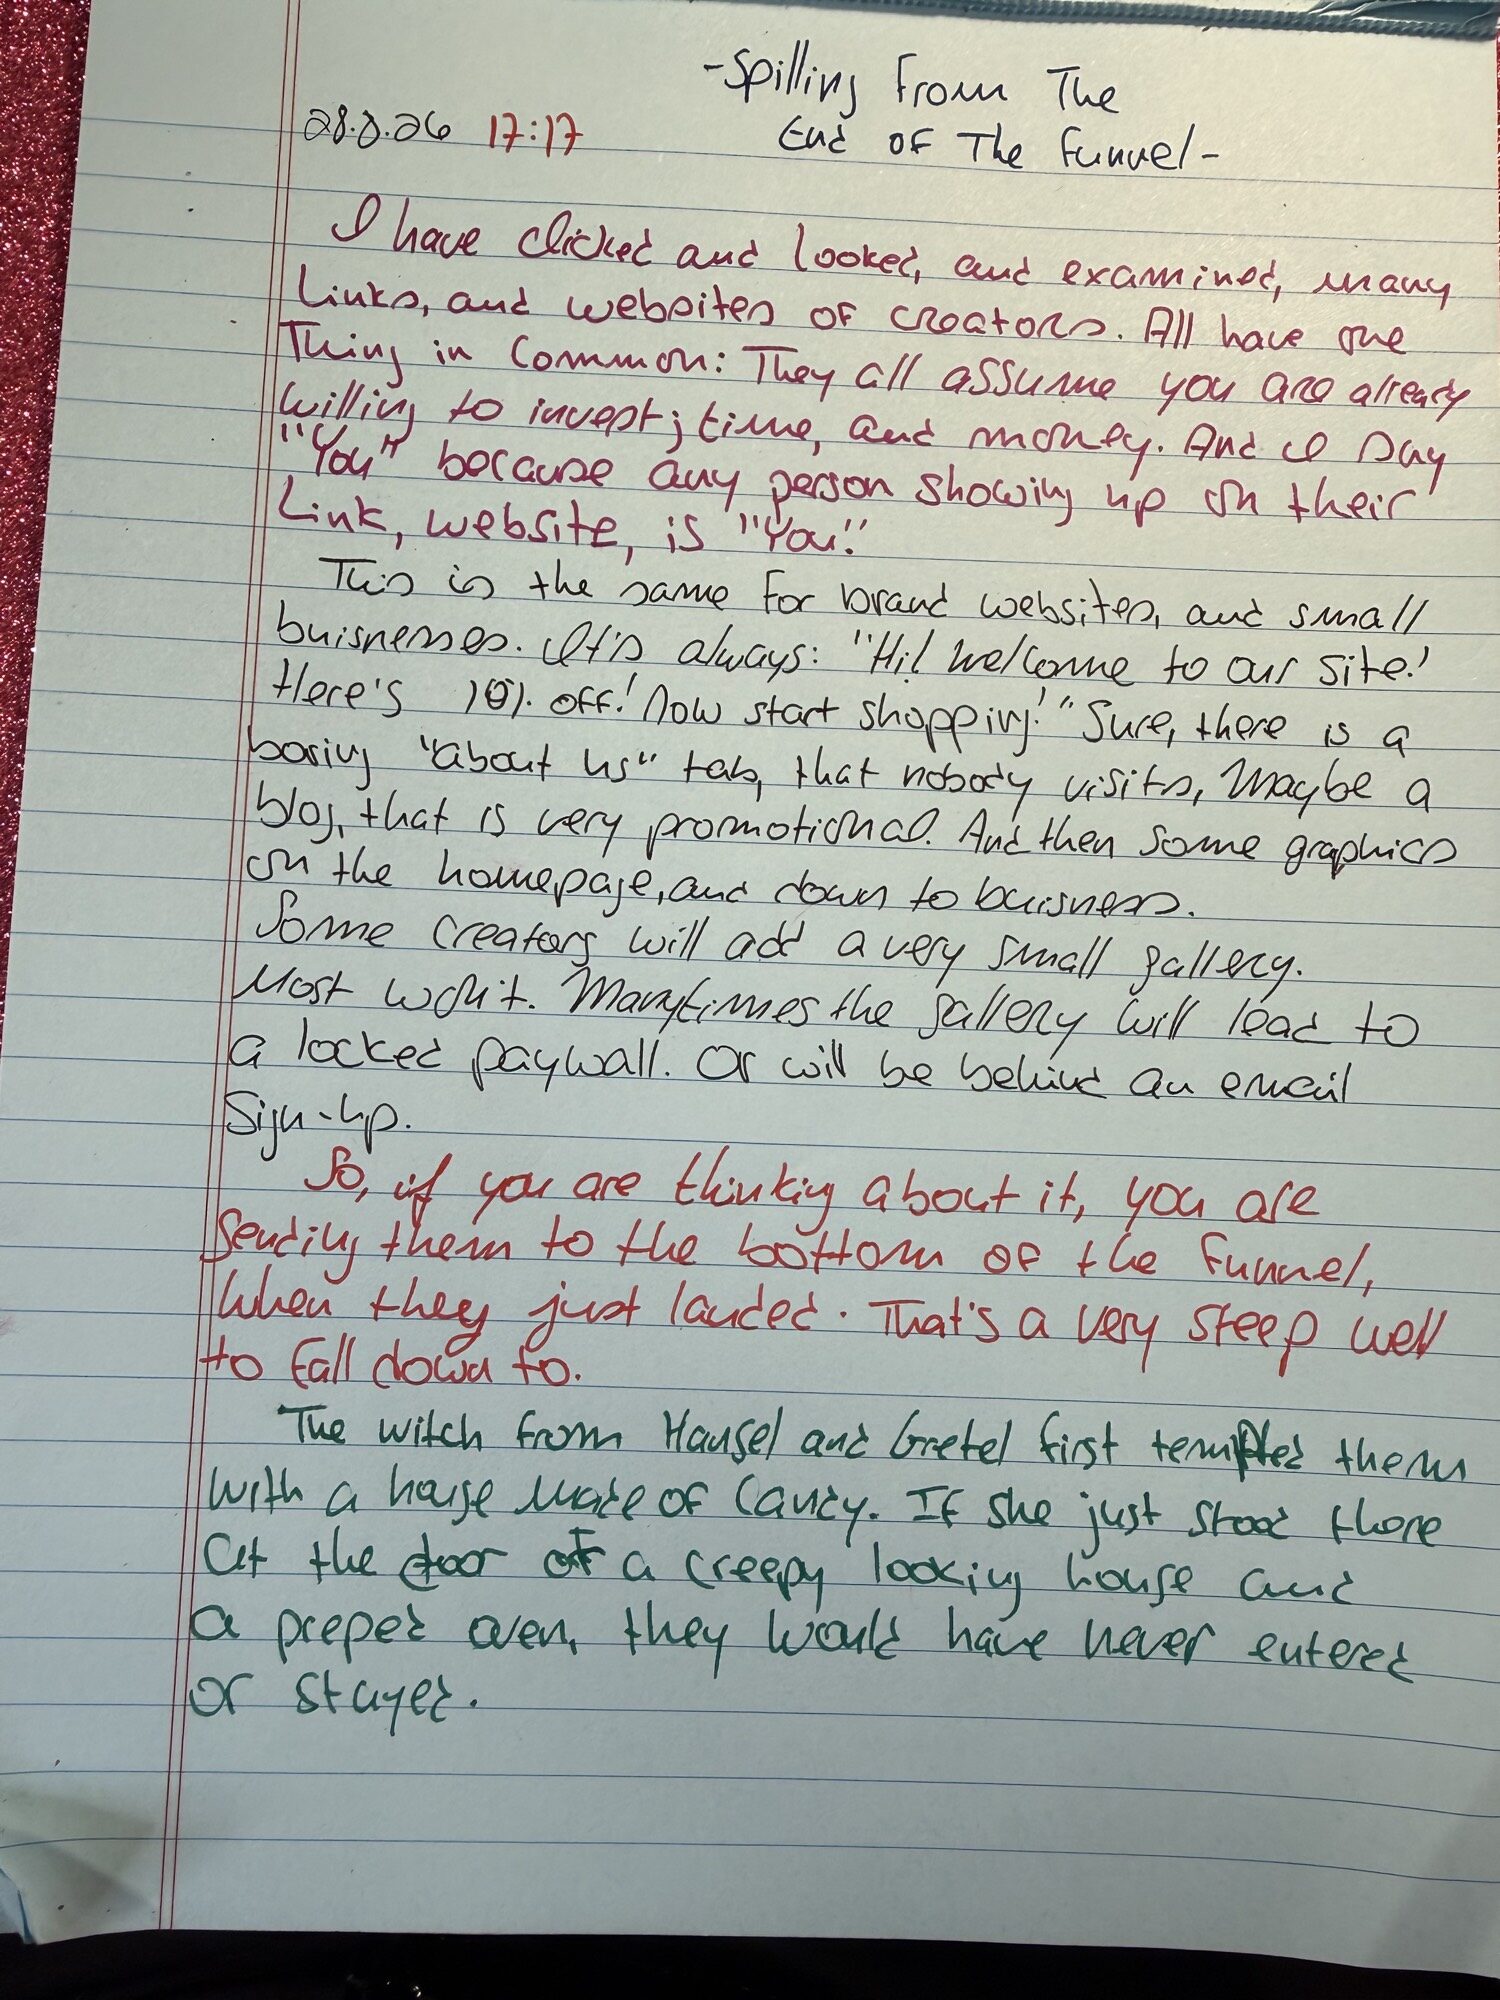 -Spilling From The
28.8.26 17:17 End of The Funnel-
I have clicked and looked, and examined, many
Links, and websites of creators. All have one
Thing in Common: They all assume you are already
willing to invest; time, and money. And I say
"You" because any person showing up on their
Link, website, is "You".
This is the same for brand websites, and small
buisnesses. It's always: "Hi! Welcome to our site!
Here's 10% off! Now start shopping!" Sure, there is a
boring "about us" tab, that nobody visits, Maybe a
blog, that is very promotional. And then some graphics
on the homepage, and down to buisness.
Some creators will add a very small gallery.
Most won't. Manytimes the gallery will lead to
a locked paywall. Or will be behind an email
Sign-up.
So, if you are thinking about it, you are
sending them to the bottom of the funnel,
when they just landed. That's a very steep well
to fall down to.
The witch from Hansel and Gretel first tempted them
with a house made of Candy. If she just stood there
at the door of a creepy looking house and
a preped oven, they would have never entered
or stayed.